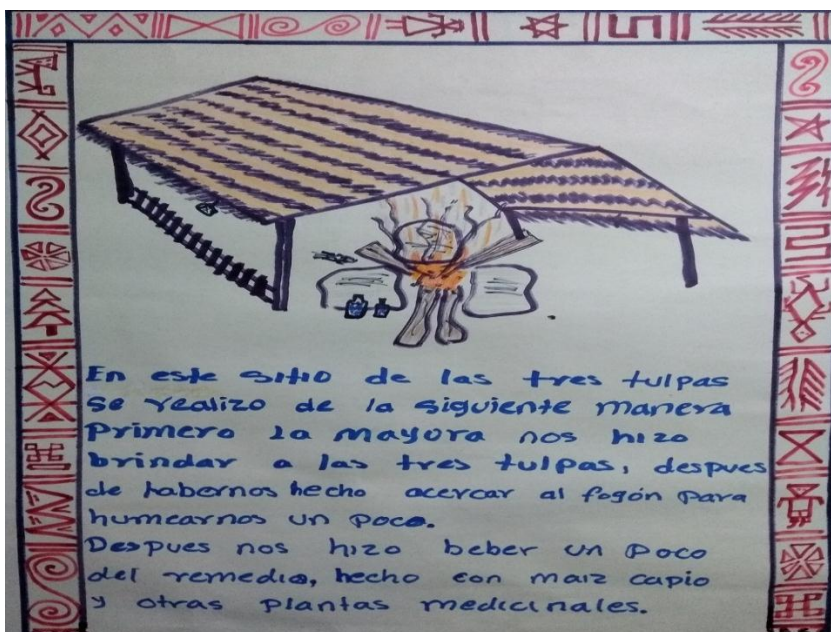 En este sitio de las tres tulpas
se realizo de la siguiente manera
Primero la mayora nos hizo
brindar a las tres tulpas, despues
de habernos hecho acercar al fogón para
humearnos un poco.
Despues nos hizo beber un poco
del remedio, hecho con maiz capio
y otras plantas medicinales.